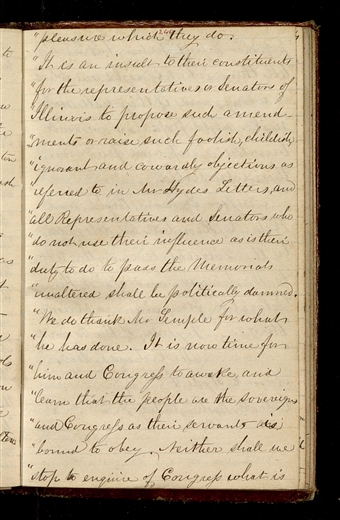 "pleasure which they do.
"It is an insult to their constituents
"for the representatives or Senators of
Illinois to propose such amend
"ments or raise such foolish, childish,
"ignorant and cowardly objections as
"referred to in Mr Hydes Letters, and
"all Representatives and Senators who
"do not use their influence as is their
"duty to do to pass the Memorials
"unaltered shall be politically damned.
"We do thank Mr Semple for what
"he has done. It is now time for
"him and Congress to awake and
"learn that the people are the sovereigns
"and Congress as their servants are
"bound to obey. Neither shall we
"stop to enquire of Congress what is